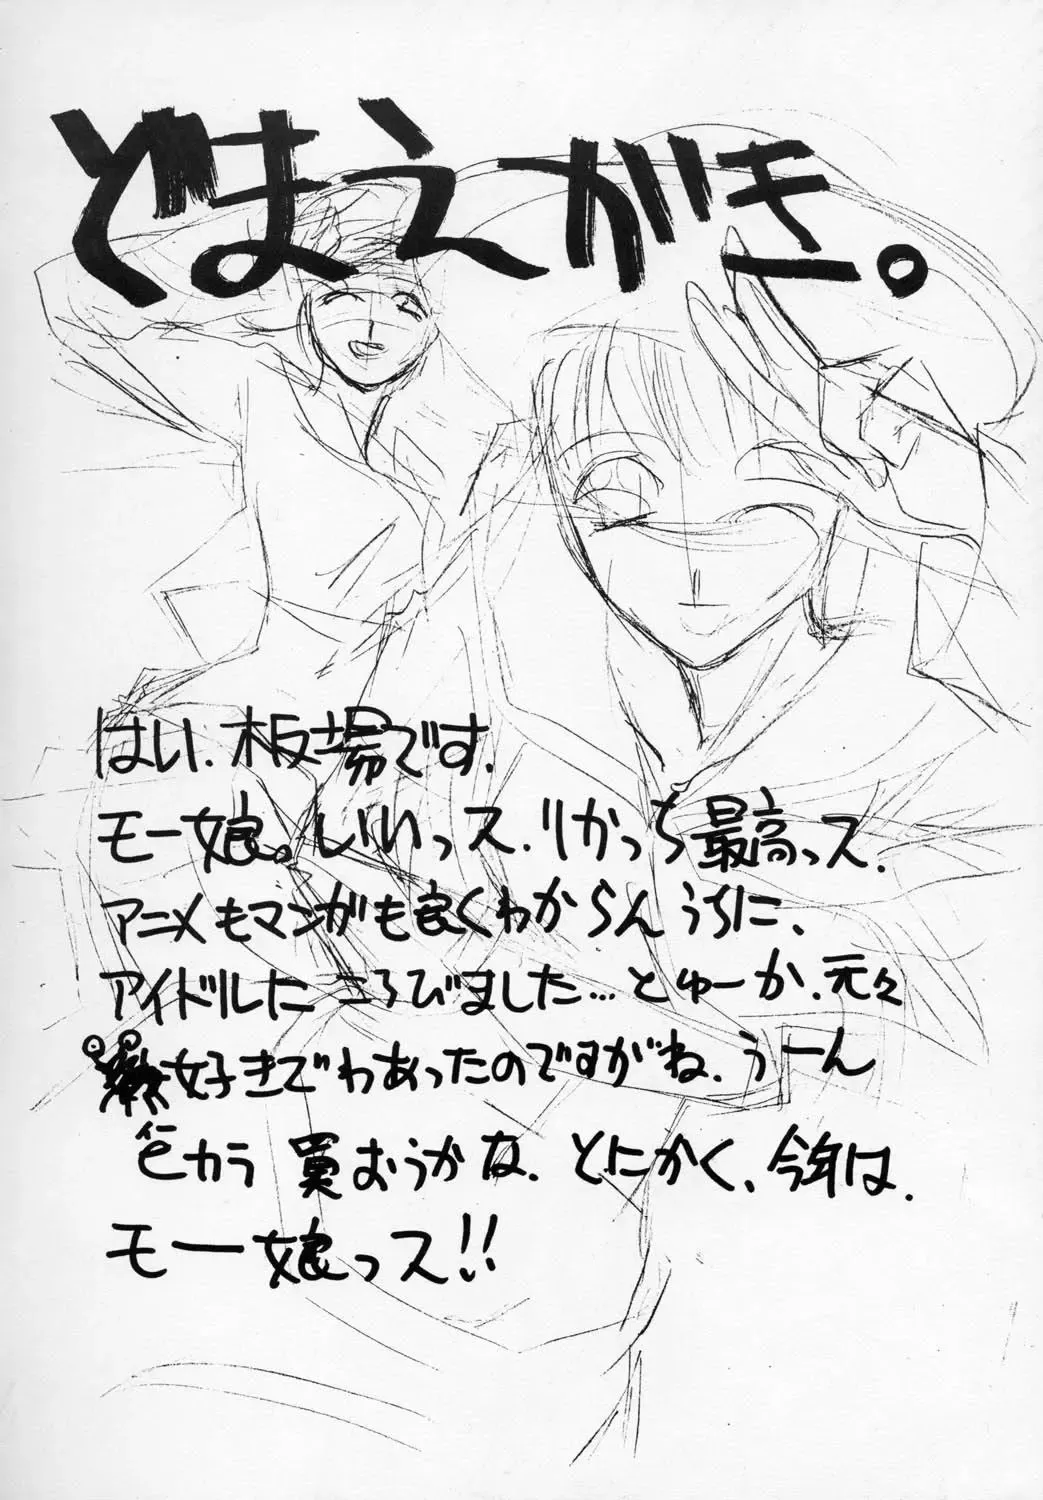 どまえがき。
はい、板場です。
モー娘。いいっス、りかっち最高っス。
アニメもマンガも良くわからんうちに、
アイドルにころびました…とゆーか、元々
好きでわあったのですがね、うーん
カラ買おうかな、とにかく、今年は、
モー娘っス!!